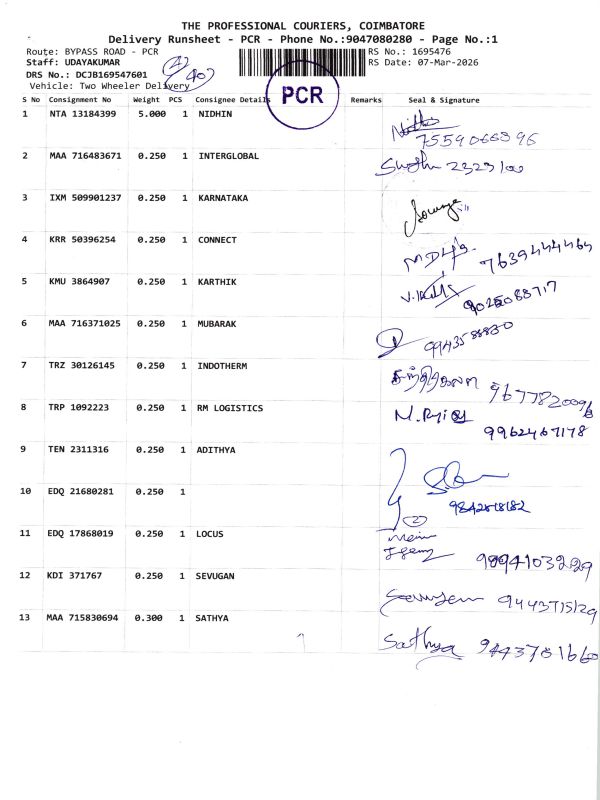 THE PROFESSIONAL COURIERS, COIMBATORE
Delivery Runsheet - PCR - Phone No.:9047080280 - Page No.:1
Route: BYPASS ROAD - PCR RS No.: 1695476
Staff: UDAYAKUMAR RS Date: 07-Mar-2026
DRS No.: DCJB169547601
Vehicle: Two Wheeler Delivery
PCR
S No Consignment No Weight PCS Consignee Details Remarks Seal & Signature
1 NTA 13184399 5.000 1 NIDHIN
7559066896
2 MAA 716483671 0.250 1 INTERGLOBAL
2323100
3 IXM 509901237 0.250 1 KARNATAKA
4 KRR 50396254 0.250 1 CONNECT
7639444464
5 KMU 3864907 0.250 1 KARTHIK
9025088717
6 MAA 716371025 0.250 1 MUBARAK
7 TRZ 30126145 0.250 1 INDOTHERM
8 TRP 1092223 0.250 1 RM LOGISTICS
9962467178
9 TEN 2311316 0.250 1 ADITHYA
10 EDQ 21680281 0.250 1
9842818182
2
11 EDQ 17868019 0.250 1 LOCUS
12 KDI 371767 0.250 1 SEVUGAN
9443715129
13 MAA 715830694 0.300 1 SATHYA
Sathya 9443781660